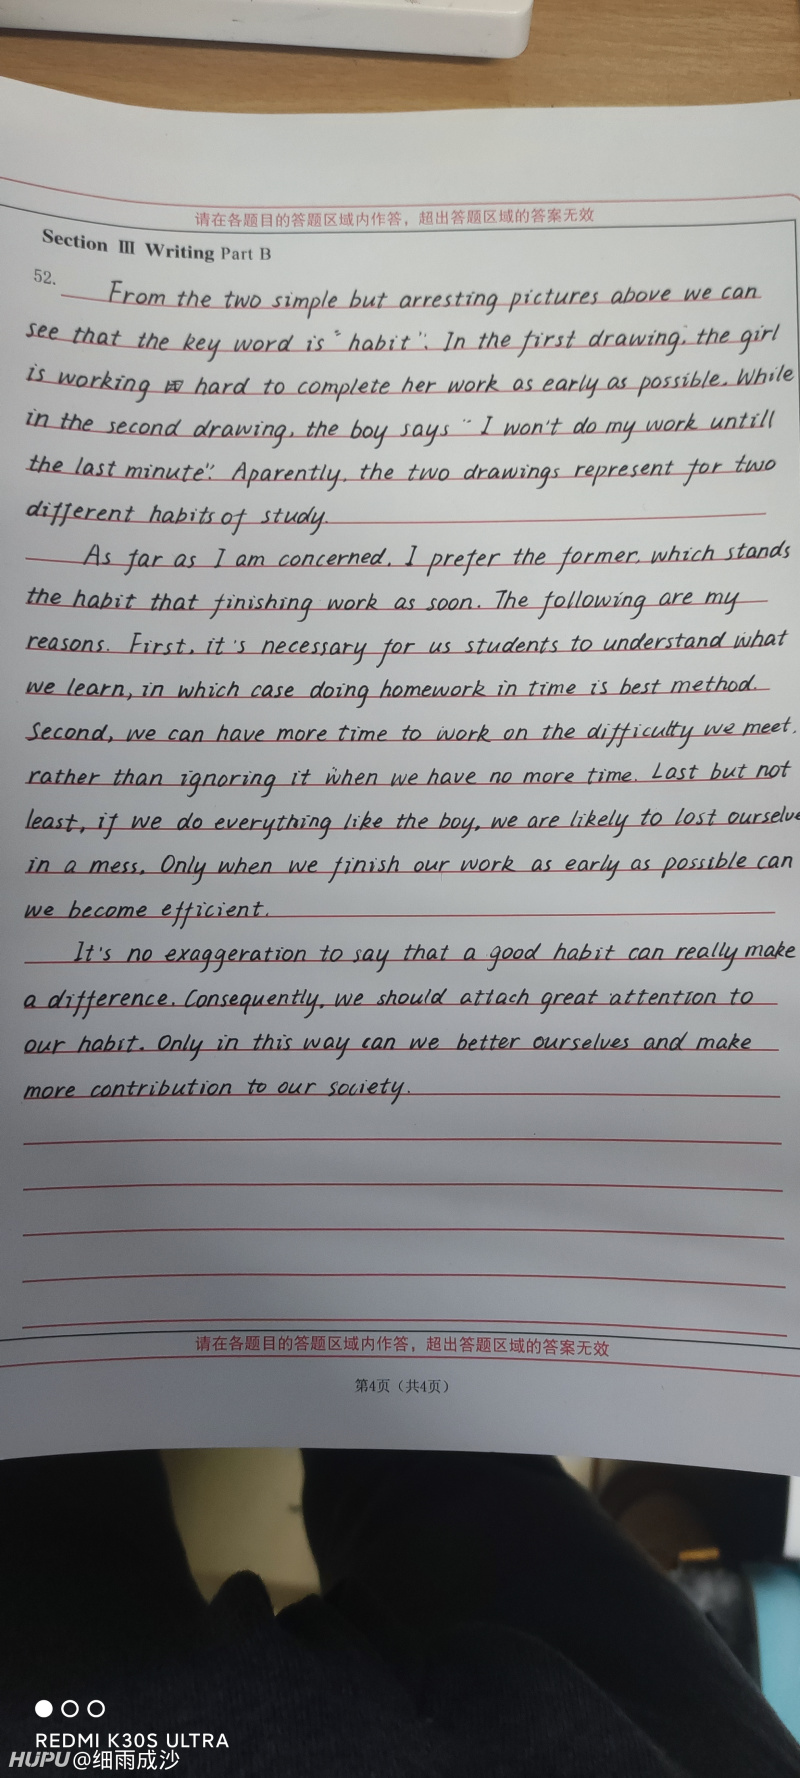 请在各题目的答题区域内作答，超出答题区域的答案无效
Section Ⅲ Writing Part B
52. From the two simple but arresting pictures above we can
see that the key word is "habit". In the first drawing, the girl
is working hard to complete her work as early as possible. While
in the second drawing, the boy says "I won't do my work untill
the last minute". Aparently, the two drawings represent for two
different habits of study.
As far as I am concerned, I prefer the former, which stands
the habit that finishing work as soon. The following are my
reasons. First, it's necessary for us students to understand what
we learn, in which case doing homework in time is best method.
Second, we can have more time to work on the difficulty we meet,
rather than ignoring it when we have no more time. Last but not
least, if we do everything like the boy, we are likely to lost ourselve
in a mess. Only when we finish our work as early as possible can
we become efficient.
It's no exaggeration to say that a good habit can really make
a difference. Consequently, we should attach great attention to
our habit. Only in this way can we better ourselves and make
more contribution to our society.
请在各题目的答题区域内作答，超出答题区域的答案无效
第4页（共4页）
REDMI K30S ULTRA
HUPU@细雨成沙